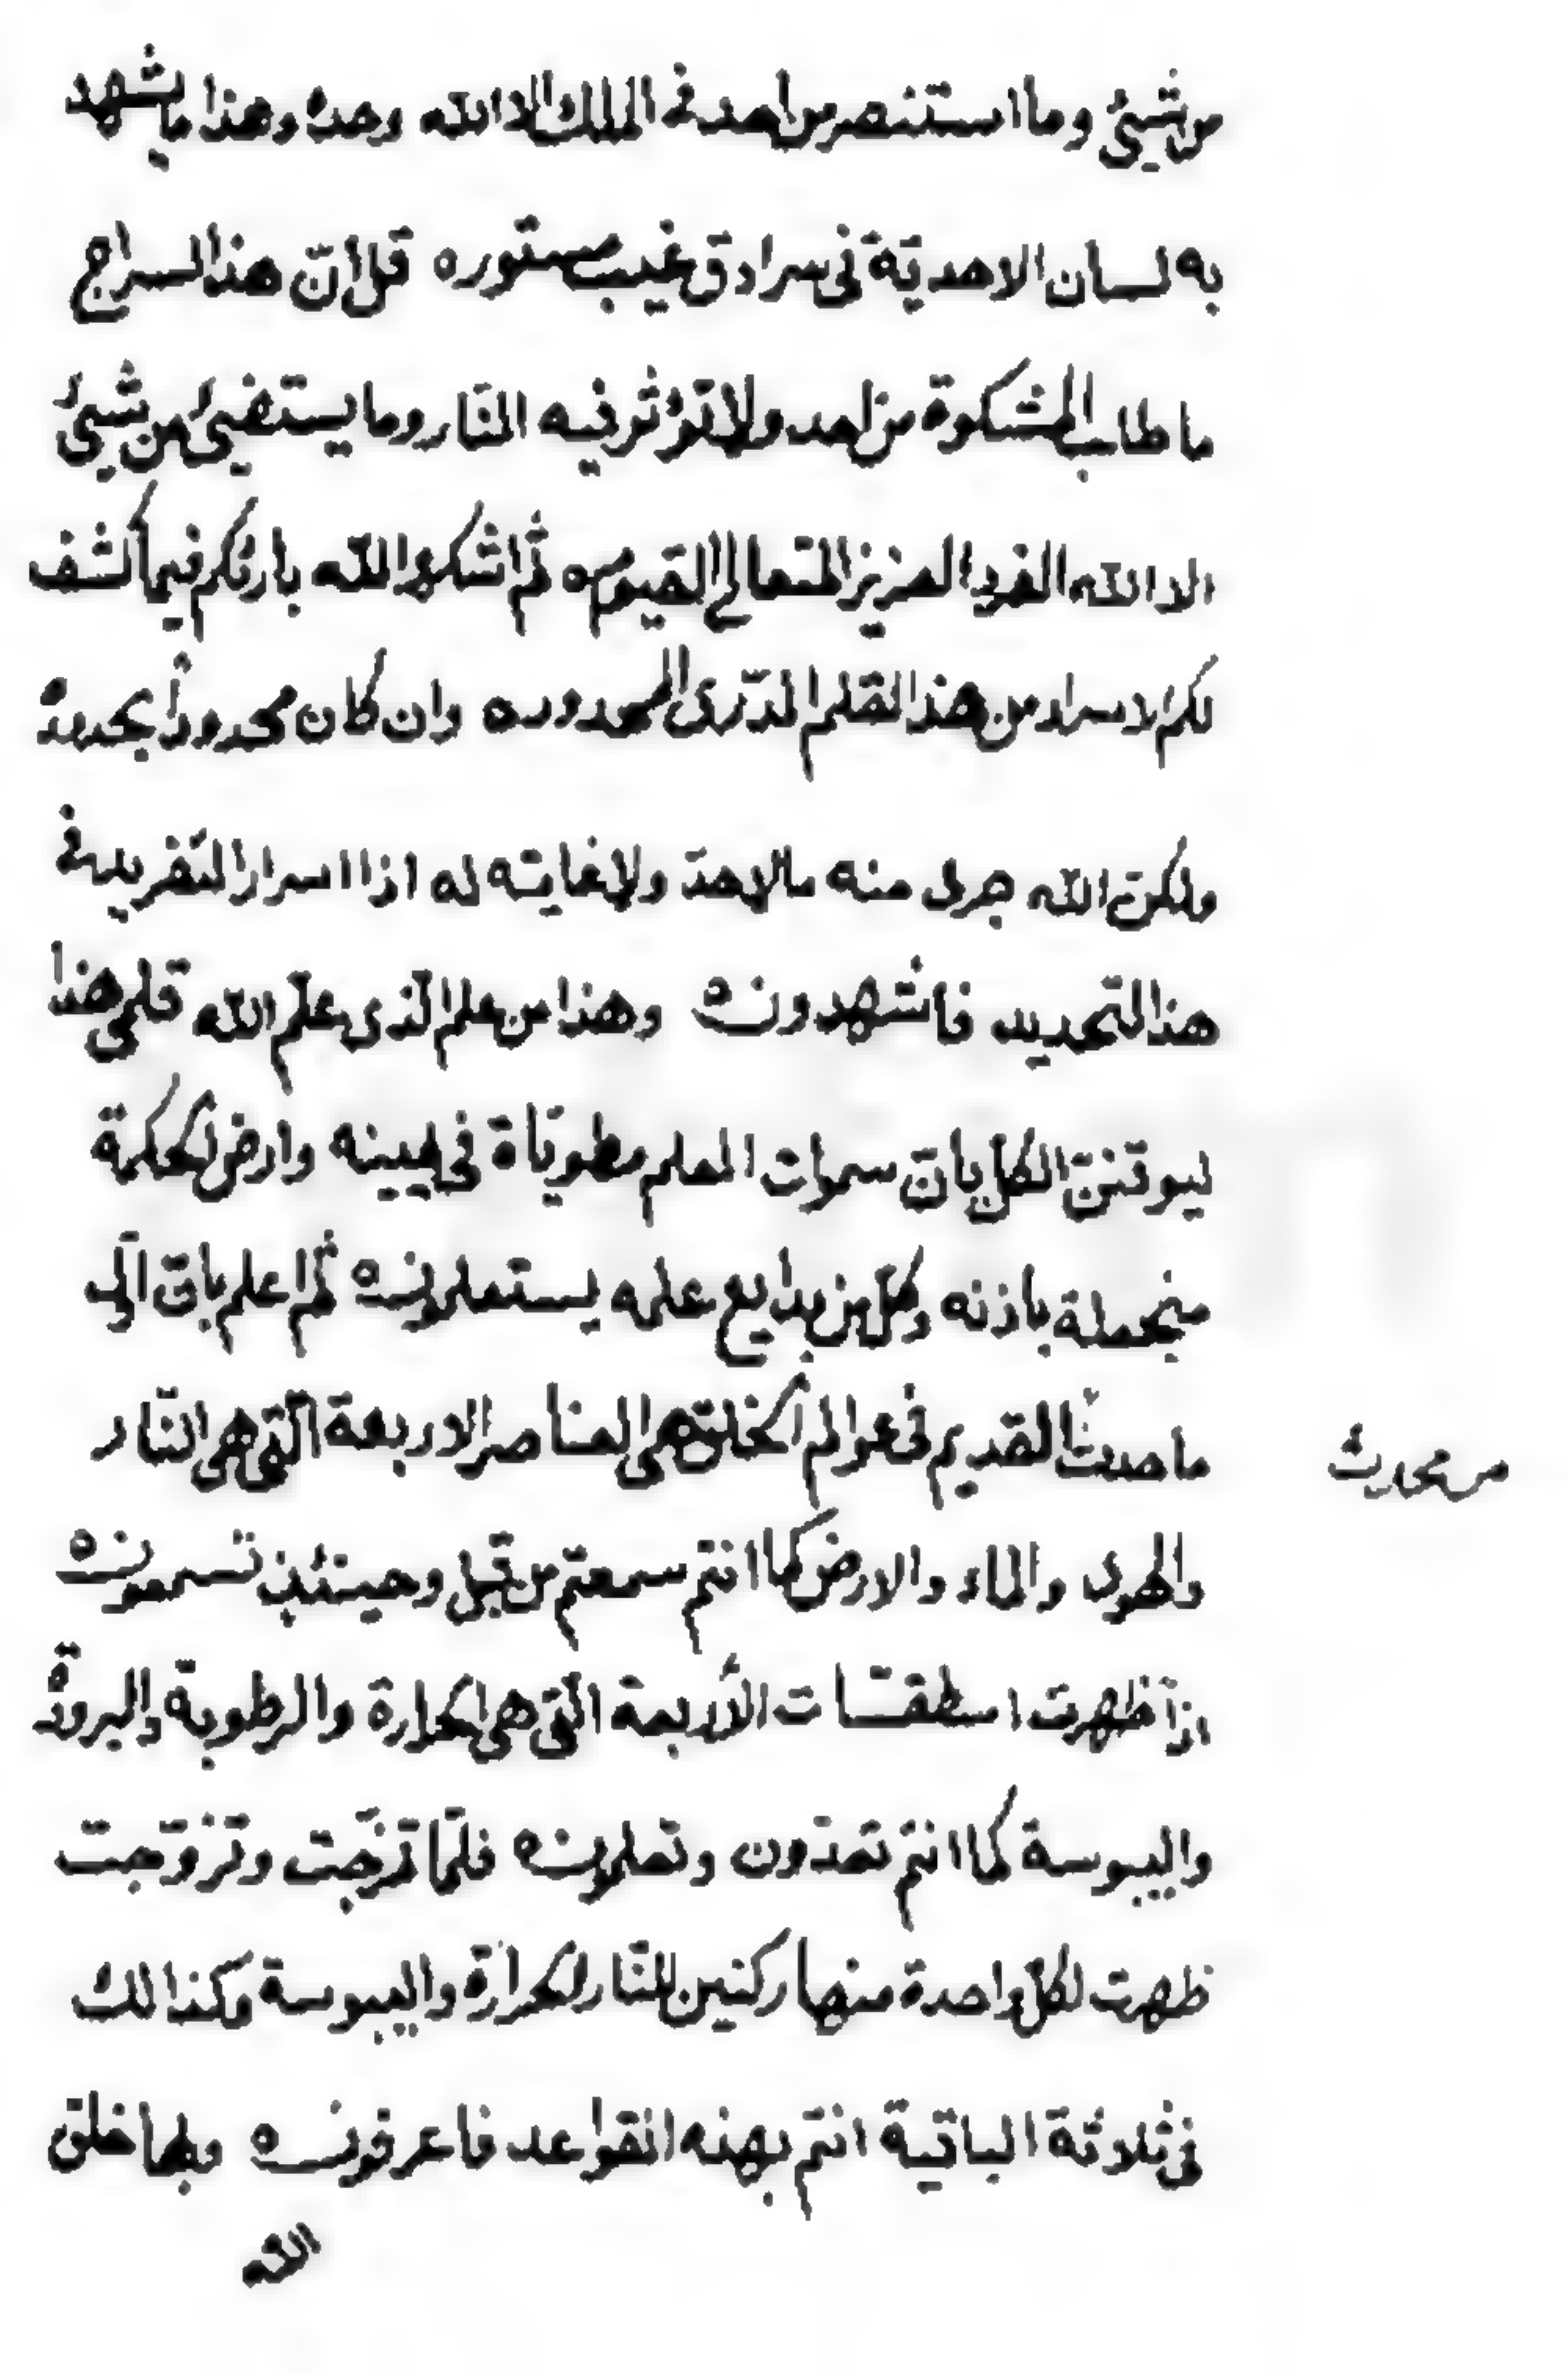 من شیئ وما استنصر من احد فی الملك الا الله وحده وهذا ما یشهد
به لسان الاحدیة فی سرادق غیب مستوره قل انّ هذا السراج
ما طاب المشكوة من احد ولا تؤثر فیه النّار وما یستضیئ من شیئ
الا الله الفرد العزیز المتعالی القیومه ثم اشكروا الله بارئكم فیما كشف
لكم الاسرار من هذا القلم الدّرّی المحدوده وان كان محدوداً بحدیده
ولكنّ الله جری منه مالا حدّ ولا غایة له اذا اسرار التّفرید فی
هذا التحدید فاشهدونه وهذا من علم الّذی علّم الله قلمی هذا
لیوقننّ الكل بانّ سموات العلم مطویّاة فی یمینه وارض الحكمة
منجعلة باذنه وكلّ من بدایع علمه یستعلمونه ثم اعلم بانّ اوّل
ما حدث القدیم فی عوالم الخلق هی العناصر الاربعة الّتی هی النّار
من محادیث
والهوی والماء والارض كما انتم سمعتم من قبل وحینئذٍ تسمعونه
اذاً ظهرت اسطقسّات الأربعة الّتی هی الحرارة والرطوبة والبرودة
والیبوسة كما انتم تعدّون وتعلمونه فلمّا تمزّجت وتزوّجت
ظهرت لكلّ واحدة منها ركنین للنّار الحرارة والیبوسة وكذالك
فی ثلاثة الباقیة انتم بهذه القواعد فاعرفونه وبها خلق
الله